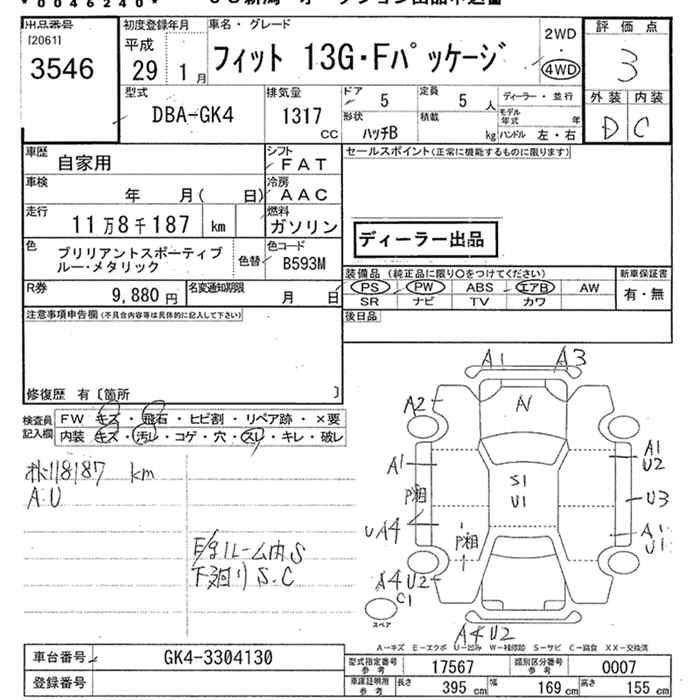 *0046240*
出品番号
[2061]
3546
初度登録年月
平成
29 1月
車名・グレード
フィット 13G・Fパッケージ
2WD
・
4WD
評価点
3
外装 内装
D C
型式
DBA-GK4
排気量
1317
CC
ドア 5
定員 5人
ディーラー・並行
形状
ハッチB
積載
kg
モデル年式 年
ハンドル 左・右
車歴
自家用
シフト
FAT
車検
年 月( 日)
冷房
AAC
走行
11万8千187 km
燃料
ガソリン
色
ブリリアントスポーティブ
ルー・メタリック
色替
色コード
B593M
R券
9,880円
名変通知期限
月 日
セールスポイント(正常に機能するものに限ります)
ディーラー出品
装備品 (純正品に限り○をつけてください)
PS PW ABS エアB AW
SR ナビ TV カワ
新車保証書
有・無
注意事項申告欄(不具合内容等は具体的に記入して下さい)
後日品
修復歴 有〔箇所 〕
検査員
記入欄
FW キズ・飛石・ヒビ割・リペア跡・×要
内装 キズ・汚レ・コゲ・穴・スレ・キレ・破レ
118187 km
A.U
ルーム内S
下廻りS.C
A1 A3
A2
A1
P相
UA4
P相
A4 U2
C1
スペア
A4 U2
S1
U1
A1
U2
U3
A1
U1
A-キズ E-エクボ U-凹み W-補修跡 S-サビ C-腐食 XX-交換済
車台番号 GK4-3304130
登録番号
型式指定番号
参考
17567
類別区分番号
参考
0007
車庫証明用
参考
長さ 395cm
幅 169cm
高さ 155cm